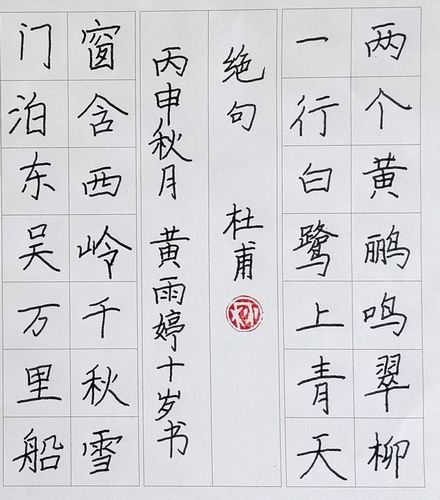 两个黄鹂鸣翠柳
一行白鹭上青天
绝句 杜甫
丙申秋月 黄雨婷十岁书
窗含西岭千秋雪
门泊东吴万里船